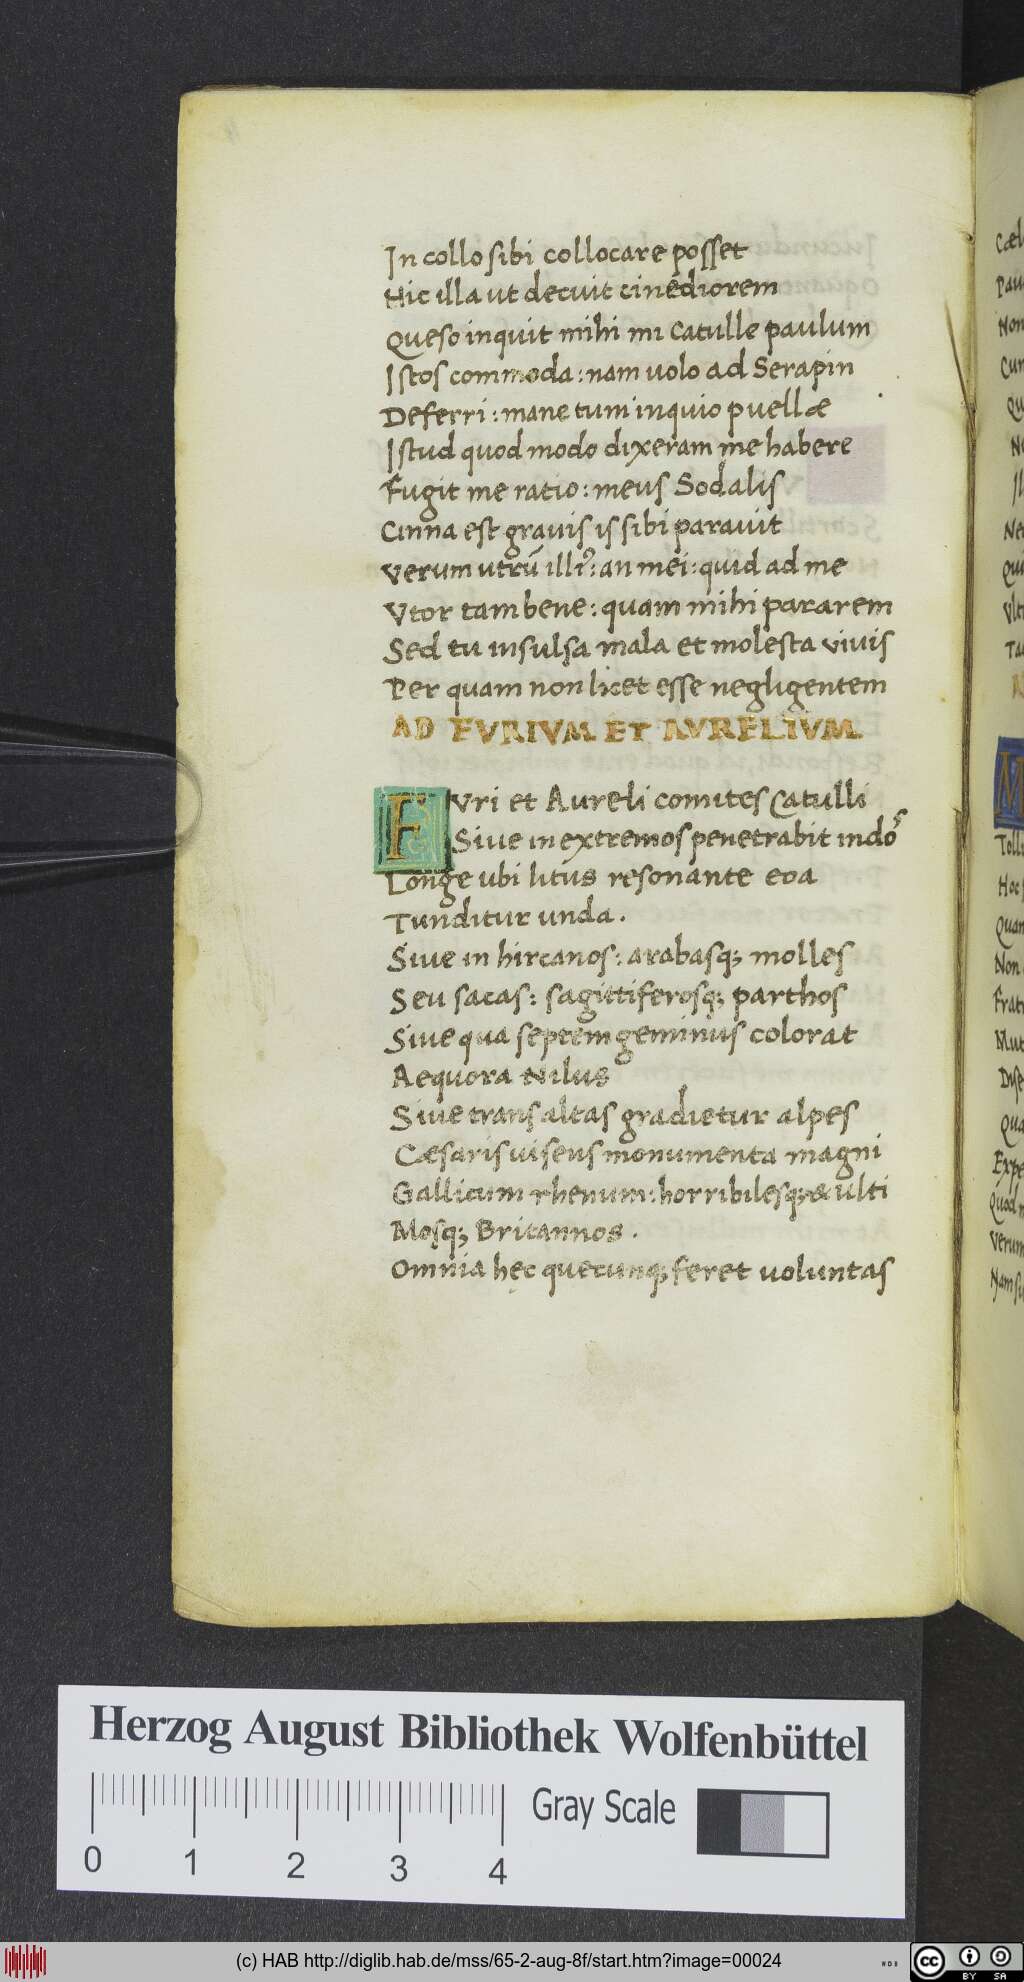 In collo sibi collocare posset
Hic illa ut decuit cinediorem
Queso inquit mihi mi Catulle paulum
Istos commoda: nam uolo ad Serapin
Deferri: mane tum inquio puellæ
Istud quod modo dixeram me habere
Fugit me ratio: meus Sodalis
Cinna est grauis is sibi parauit
Verum utrū illiꝰ: an mei: quid ad me
Vtor tam bene: quam mihi pararem
Sed tu insulsa mala et molesta vivis
Per quam non licet esse negligentem
AD FVRIVM ET AVRELIVM
FVri et Aureli comites Catulli
Siue in extremos penetrabit indoˢ
Longe ubi litus resonante eoa
Tunditur unda.
Siue in hircanos: arabasq; molles
Seu sacas: sagittiferosq; parthos
Siue qua septem geminus colorat
Aequora Nilus
Siue trans altas gradietur alpes
Cæsaris uisens monumenta magni
Gallicum rhenum: horribilesq; & ulti
Mosq; Britannos.
Omnia hęc quecunq; feret voluntas
Cæl
Pau
Non
Cum
Qu
N
Il
Nec
Qui
Vlt
Ta
M
Toll
Hoc
Quam
Non
Frat
Mut
Dise
Qua
Expe
Quod
Verum
Nam su
Herzog August Bibliothek Wolfenbüttel
0 1 2 3 4
Gray Scale
(c) HAB http://diglib.hab.de/mss/65-2-aug-8f/start.htm?image=00024
WDB
cc BY SA